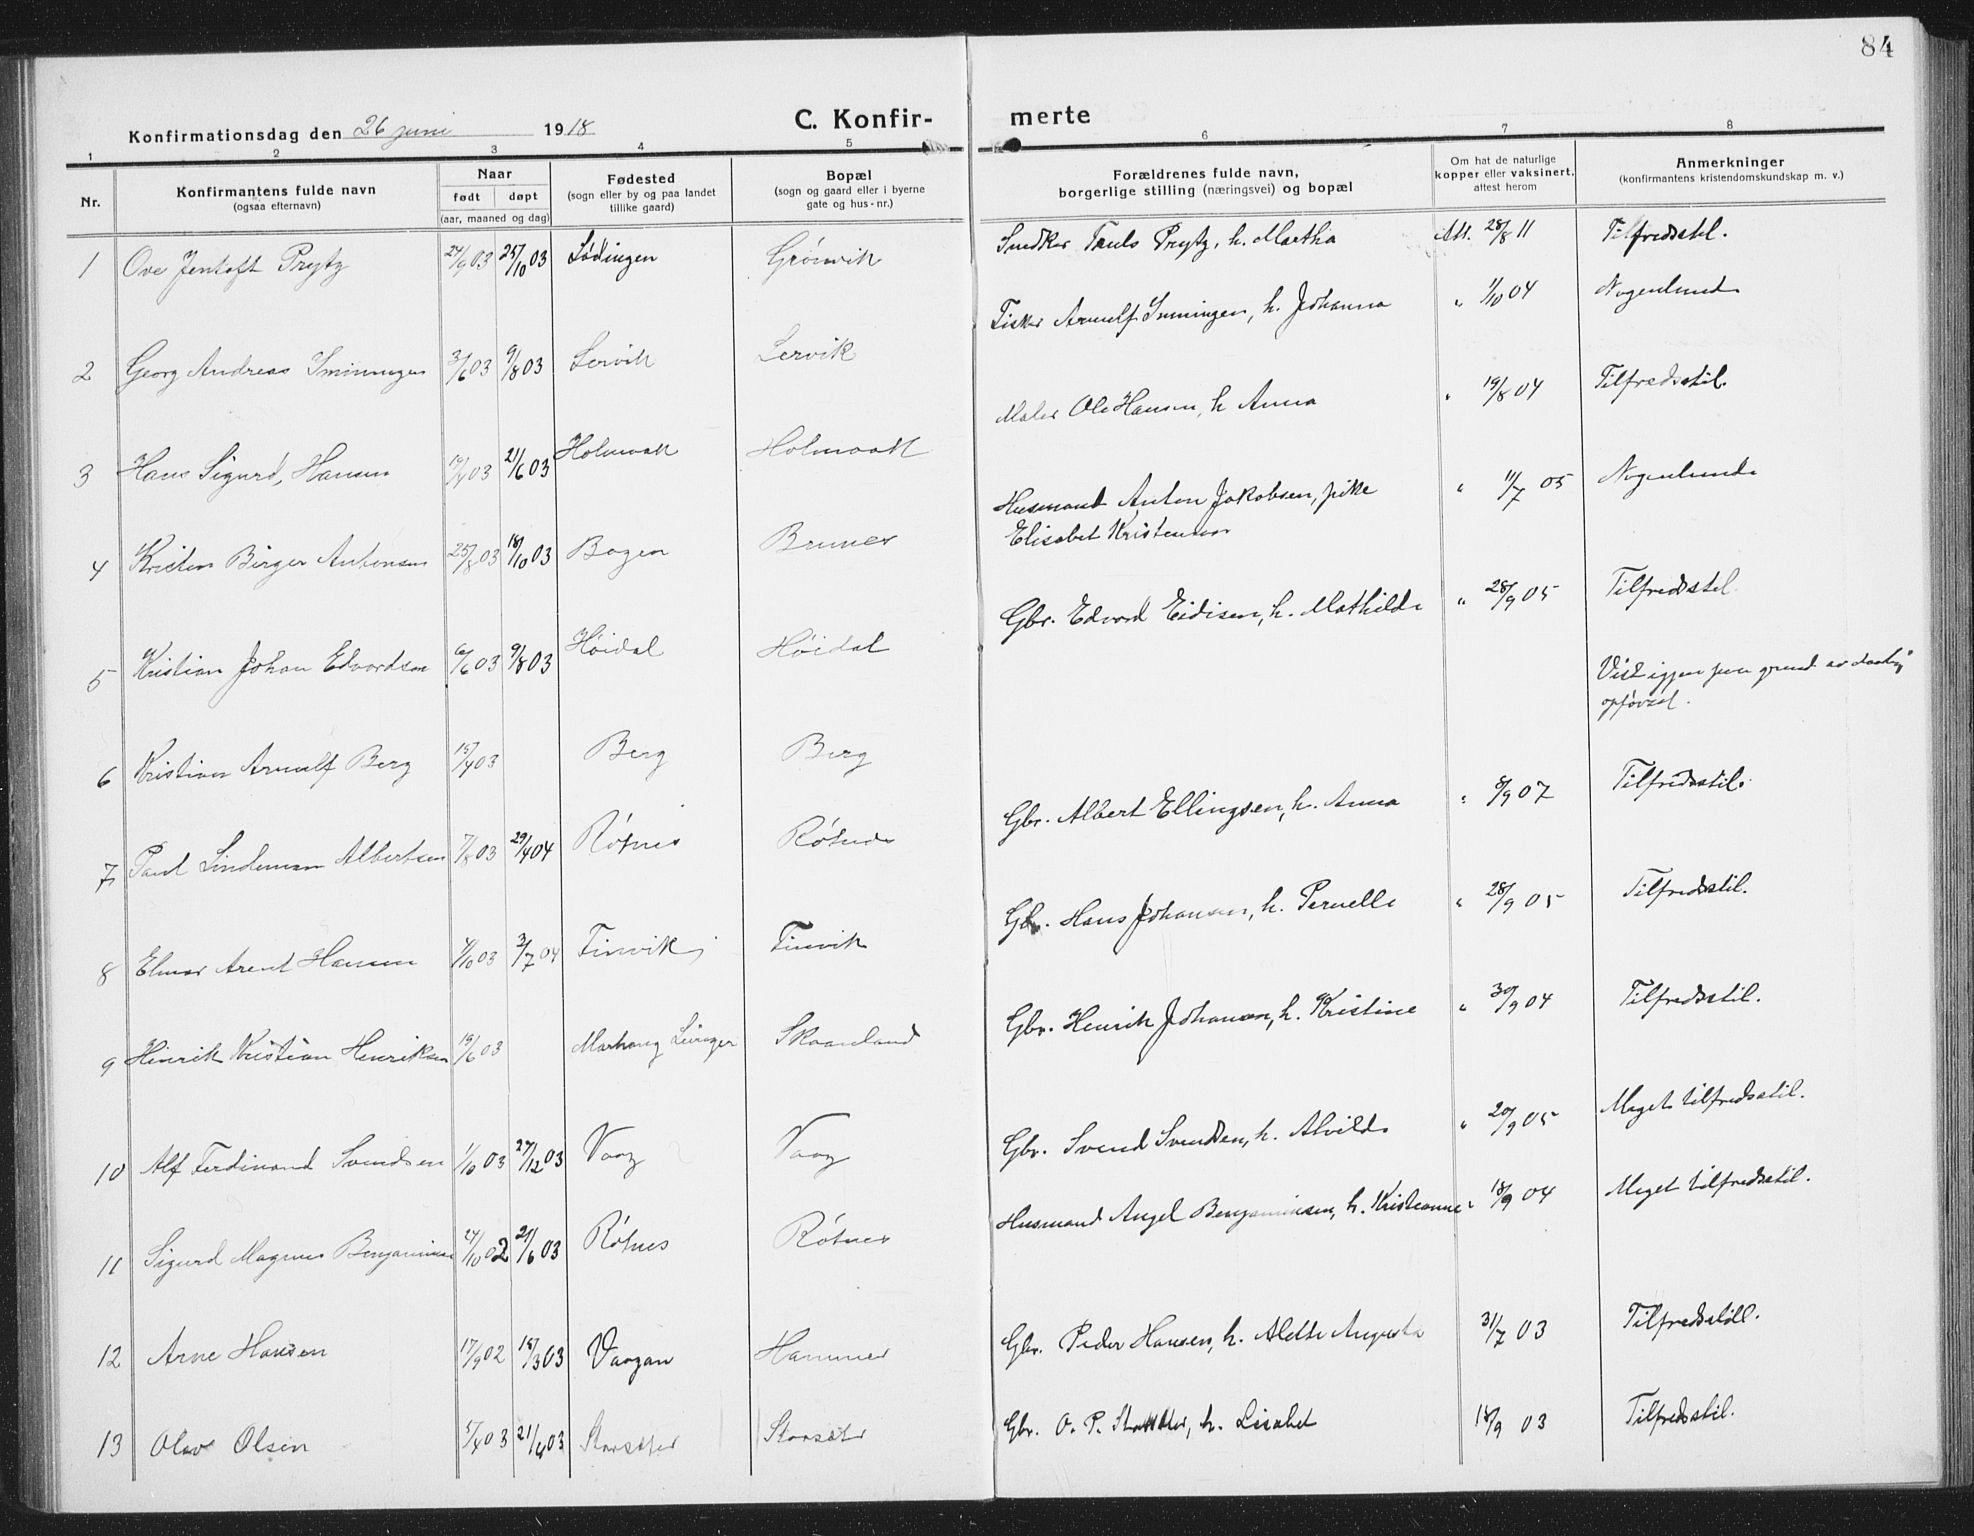 84
Konfirmationsdag den 26 juni 1918
C. Konfir-
merte
1 2 3 4 5 6 7 8
Nr.
Konfirmantens fulde navn
(ogsaa efternavn)
Naar
født døpt
(aar, maaned og dag)
Fødested
(sogn eller by og paa landet
tillike gaard)
Bopæl
(sogn og gaard eller i byerne
gate og hus-nr.)
Forældrenes fulde navn,
borgerlige stilling (næringsvei) og bopæl
Om hat de naturlige
kopper eller vaksinert,
attest herom
Anmerkninger
(konfirmantens kristendomskundskap m. v.)
1 Ove Jentoft Prytz 24/9 03 25/10 03 Lødingen Grønvik Snedker Prytz, h. Martha Att. 28/8 11 Tilfredsstil.
2 Georg Andreas 3/6 03 9/8 03 Lervik Lervik Fisker Arnulf h. Johanna " 1/10 04 Nogenlunde
3 Hans Sigurd, Hansen 19/4 03 21/6 03 Holmvak Holmvak Maler Ole Hansen, h Anna " 19/8 04 Tilfredsstil.
4 Kristen Birger Antonsen 25/8 03 18/10 03 Bogen Bruner Husmand Anton Jakobsen, pike
Elisabet " 11/7 05 Nogenlunde
5 Kristian Johan Edvardsen 6/6 03 9/8 03 Høidal Høidal Gbr. Edvard Eidisen, h. Mathilde " 28/9 05 Tilfredsstil.
6 Kristian Arnulf Berg 15/4 03 Berg Berg Vist igjen paa grund av daarlig
opførsel.
7 Paul Lindeman Albertsen 7/8 03 29/4 04 Røtnes Røtnes Gbr. Albert Ellingsen, h. Anna " 8/9 07 Tilfredsstil.
8 Elmar Arent Hansen 4/10 03 3/7 04 Finvik Finvik Gbr. Hans Johansen, h. Pernelle " 28/9 05 Tilfredsstil.
9 Hinrik Kristian Henriksen 19/6 03 Skaanland Gbr. Henrik Johansen, h. Kristine " 30/9 04 Tilfredsstil.
10 Alf Ferdinand Svendsen 1/10 03 27/12 03 Vaag Vaag Gbr. Svend Svendsen, h. Alvilde " 20/9 05 Meget tilfredsstil.
11 Sigurd Magnus Benjaminsen 24/10 02 21/6 03 Røtnes Røtnes Husmand Angel Benjaminsen, h. Kristianne " 18/9 04 Meget tilfredsstil.
12 Arne Hansen 17/9 02 15/3 03 Vaagan Hammer Gbr. Peder Hansen, h. Alette Augusta 31/7 03 Tilfredsstill.
13 Olav Olsen 5/4 03 21/6 03 Storseter Storseter Gbr. O. P. h. Lisabet 18/9 03 Tilfredsstil.